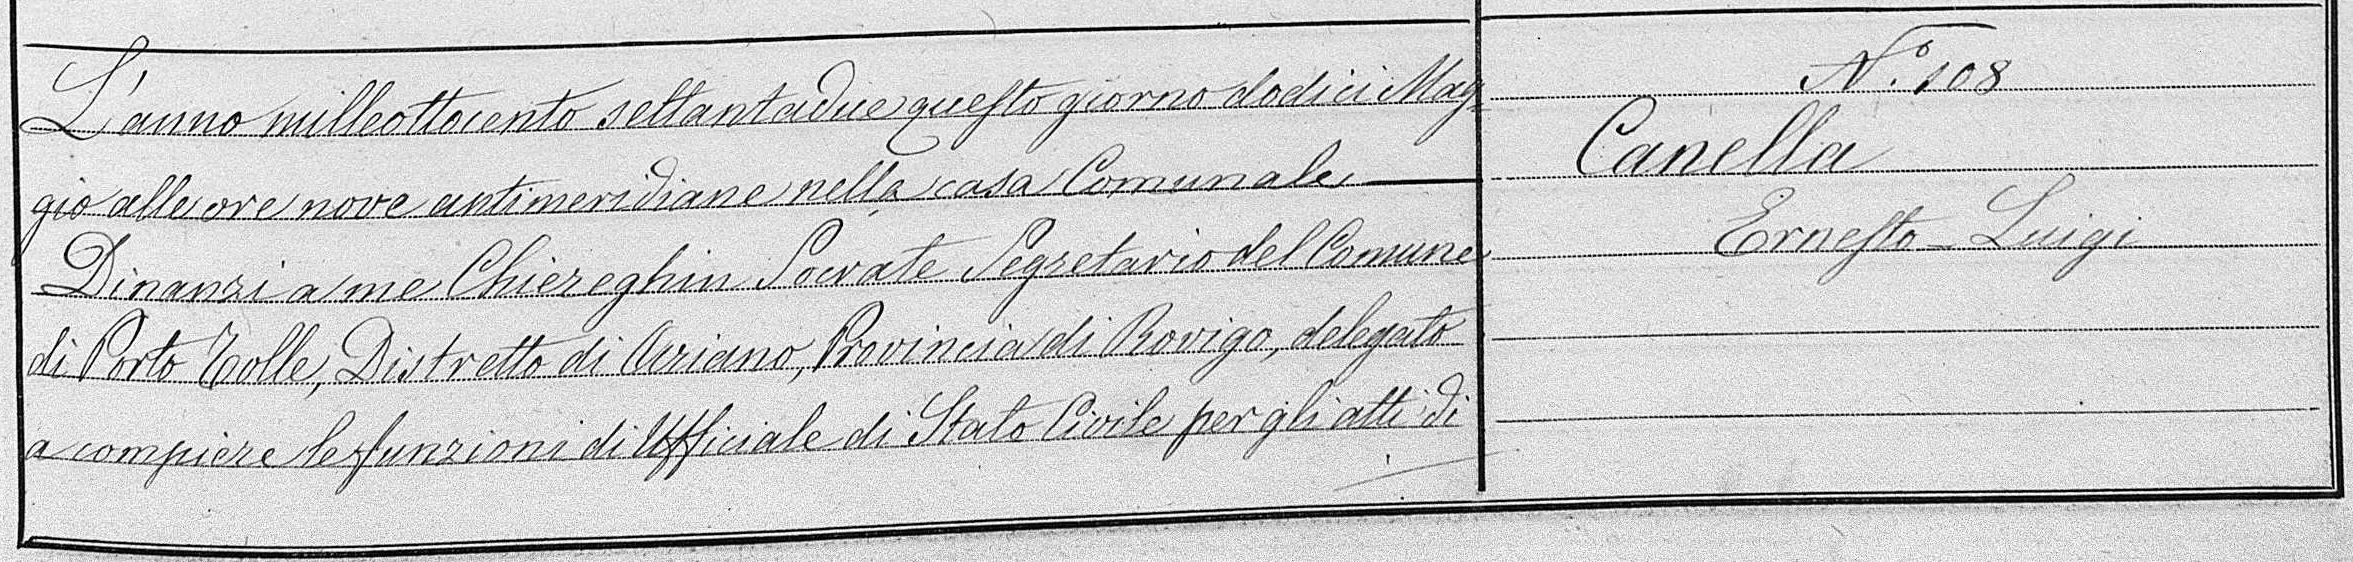 L'anno milleottocento settantadue questo giorno dodici Mag=
gio alle ore nove antimeridiane nella casa Comunale
Dinanzi a me Chiereghin Socrate Segretario del Comune
di Porto Tolle, Distretto di Ariano, Provincia di Rovigo, delegato
a compiere le funzioni di Ufficiale di Stato Civile per gli atti di
N.º 108
Canella
Ernesto-Luigi